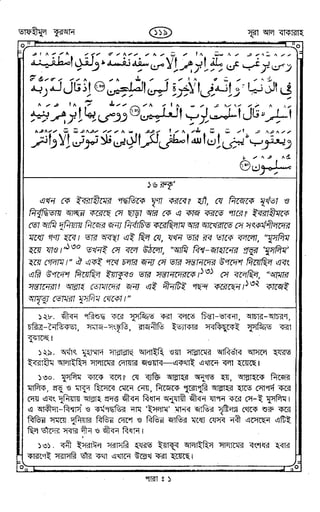 তাফহীমুল কুরআন ১১৯ সূরা আল বাকারাহ
وَمَنْ يَّرْغَبُ عَنْ مِّلَّةِ اِبْرٰهٖمَ اِلَّا مَنْ سَفِهَ نَفْسَهٗ ؕ وَلَقَدِ اصْطَفَيْنٰهُ
فِى الدُّنْيَا ۚ وَاِنَّهٗ فِى الْاٰخِرَةِ لَمِنَ الصّٰلِحِيْنَ ﴿١٣٠﴾ اِذْ قَالَ لَهٗ رَبُّهٗۤ
اَسْلِمْ ۙ قَالَ اَسْلَمْتُ لِرَبِّ الْعٰلَمِيْنَ ﴿١٣١﴾ وَوَصّٰى بِهَاۤ اِبْرٰهٖمُ بَنِيْهِ
وَيَعْقُوْبُ ؕ يٰبَنِىَّ اِنَّ اللّٰهَ اصْطَفٰى لَكُمُ الدِّيْنَ فَلَا تَمُوْتُنَّ اِلَّا وَاَنْتُمْ
مُّسْلِمُوْنَ ﴿١٣٢﴾
১৬ রুকূ'
এখন কে ইবরাহীমের পদ্ধতিকে ঘৃণা করবে? হাঁ, যে নিজেকে মূর্খতা ও
নির্বুদ্ধিতায় আচ্ছন্ন করেছে সে ছাড়া আর কে এ কাজ করতে পারে? ইবরাহীমকে
তো আমি দুনিয়ায় নিজের জন্য নির্বাচিত করেছিলাম আর আখেরাতে সে সৎকর্মশীলদের
মধ্যে গণ্য হবে। তার অবস্থা এই ছিল যে, যখন তার রব তাকে বললো, "মুসলিম
হয়ে যাও।"১৩০ তখনই সে বলে উঠলো, "আমি বিশ্ব-জাহানের প্রভুর 'মুসলিম'
হয়ে গেলাম।" ঐ একই পথে চলার জন্য সে তার সন্তানদের উপদেশ দিয়েছিল এবং
এরি উপদেশ দিয়েছিল ইয়াকুবও তার সন্তানদেরকে।১৩১ সে বলেছিল, "আমার
সন্তানেরা! আল্লাহ তোমাদের জন্য এই দীনটিই পছন্দ করেছেন।১৩২ কাজেই
আমৃত্যু তোমরা মুসলিম থেকো।"
১২৮. জীবন পরিশুদ্ধ করে সুসজ্জিত করা বলতে চিন্তা-ভাবনা, আচার-আচরণ,
চরিত্র-নৈতিকতা, সমাজ-সংস্কৃতি, রাজনীতি ইত্যাকার সবকিছুকেই সুসজ্জিত করা
বুঝাচ্ছে।
১২৯. অর্থাৎ মুহাম্মাদ সাল্লাল্লাহু আলাইহি ওয়া সাল্লামের আবির্ভাব আসলে হযরত
ইবরাহীম আলাইহিস সালামের দোয়ার জওয়াব—একথাই এখানে বলা হয়েছে।
১৩০. মুসলিম কাকে বলে? যে ব্যক্তি আল্লাহর অনুগত হয়, আল্লাহকে নিজের
মালিক, প্রভু ও মাবুদ হিসেবে মেনে নেয়, নিজেকে পুরোপুরি আল্লাহর হাতে সোপর্দ করে
দেয় এবং দুনিয়ায় আল্লাহ প্রদত্ত জীবন বিধান অনুযায়ী জীবন যাপন করে সে-ই মুসলিম।
এ আকীদা-বিশ্বাস ও কর্মপদ্ধতির নাম 'ইসলাম' মানব জাতির সৃষ্টিলগ্ন থেকে শুরু করে
বিভিন্ন সময়ে দুনিয়ার বিভিন্ন দেশে ও বিভিন্ন জাতির মধ্যে যেসব নবী এসেছেন এটিই
ছিল তাঁদের সবার দীন ও জীবন বিধান।
১৩১. বনী ইসরাঈল সরাসরি হযরত ইয়াকূব আলাইহিস সালামের বংশধর হবার
কারণেই সরাসরি তাঁর কথা এখানে উল্লেখ করা হয়েছে।
পারা : ১